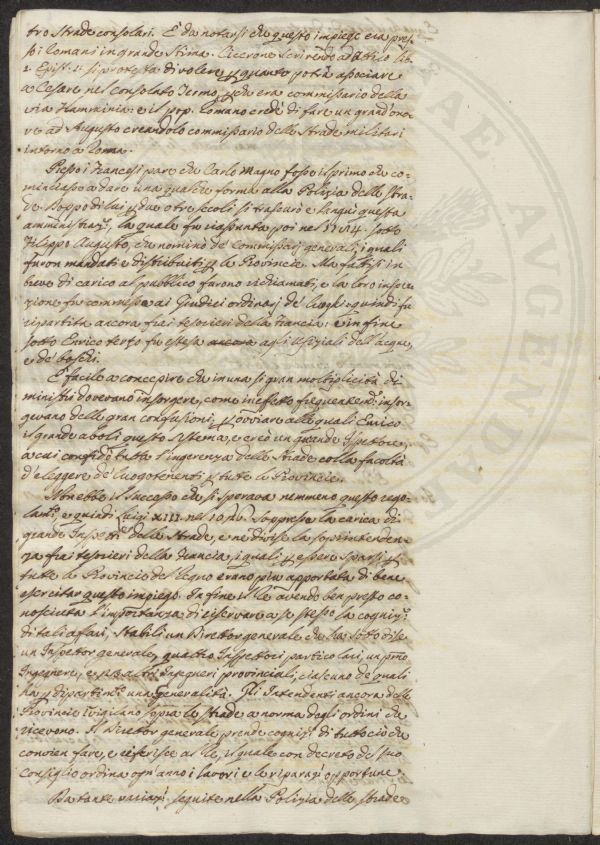 tro Strade consolari. È da notarsi che questo impiego era pres-
so i Romani in grande stima. Cicerone scrivendo ad Attico lib.
2. Epist. 1. si protesta di volere p quanto potrà associare
a Cesare nel Consolato Termo, p che era commissario della
via Flamminia: e il pop. Romano credè di fare un grand'ono-
re ad Augusto creandolo commissario delle Strade militari
intorno a Roma.
Presso i Francesi pare che Carlo Magno fosse il primo che co-
minciasse a dare una qualche forma alla Polizia delle stra-
de. Doppo di lui p due o tre secoli si trascurò e languì questa
amministraz., la quale fu riassunta poi nel sotto
Filippo Augusto, che nominò de' Commissarj generali, i quali
furon mandati e distribuiti p le Provincie. Ma fattisi in
breve di carico al pubblico furono richiamati, e la loro inspe-
zione fu commessa ai Giudici ordinarj de' luoghi: quindi fu
ripartita ancora fra i tesorieri della Francia: e in fine
sotto Enrico terzo fu estesa ancora agli Ufiziali dell'acque,
e de' boschi.
È facile a concepire che in una sì gran moltiplicità di
ministri dovevano insorgere, come in effetto frequentem. insor-
gevano delle gran confusioni, p ovviare alle quali Enrico
il grande abolì questo sistema, e creò un grande Ispettore,
a cui confidò tutta l'ingerenza delle strade colla facoltà
d'eleggere de' luogotenenti p tutte le Provincie.
Non ebbe il successo che si sperava nemmeno questo rego-
lam.to, e quindi Luigi XIII. nel 1626. soppresse la carica di
grande Inspett.e delle Strade, e ne divise la soprintenden-
za fra i tesorieri della Francia, i quali p essere sparsi p
tutte le Provincie del Regno erano più a portata di bene
esercitar questo impiego. In fine il Re avendo ben presto co-
nosciuta l'importanza di riservare a se stesso la cogniz.e
di tali affari, stabilì un Director generale che ha sotto di se
un Inspettor generale, quattro Inspettori particolari, un primo
Ingegnere, e Ingegneri provinciali, ciascuno de' quali
ha p dipartim.to una generalità. Gli Intendenti ancora delle
Provincie vigilano sopra le strade a norma degli ordini che
ricevono. Il Director generale prende cogniz.e di tutto ciò che
convien fare, e riferisce al Re, il quale con decreto del suo
Consiglio ordina ogn'anno i lavori e le riparaz.i opportune.
Da tante variaz.i seguite nella Polizia delle strade